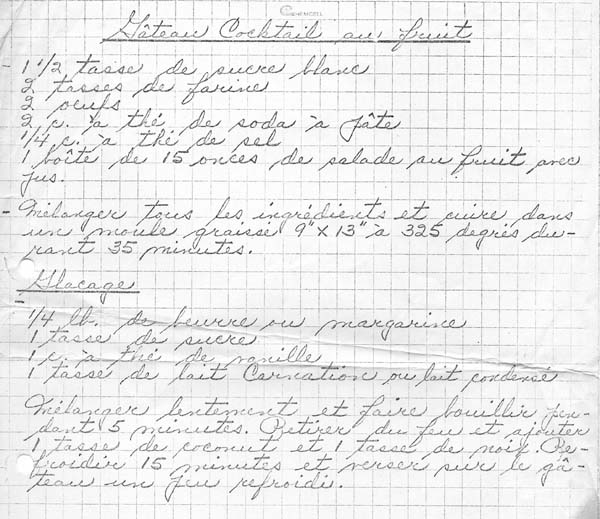 Gâteau Cocktail au fruit
- 1 1/2 tasse de sucre blanc
2 tasses de farine
2 oeufs
2 c. à thé de soda à pâte
1/4 c. à thé de sel
1 boîte de 15 onces de salade au fruit avec
jus.
- Mélanger tous les ingrédients et cuire dans
un moule graissé 9" X 13" à 325 degrés du-
rant 35 minutes.
Glacage
- 1/4 lb. de beurre ou margarine
1 tasse de sucre
1 c. à thé de vanille
1 tasse de lait Carnation ou lait condensé
Mélanger lentement et faire bouillir pen-
dant 5 minutes. Retirer du feu et ajouter
1 tasse de coconut et 1 tasse de noix. Re-
froidir 15 minutes et verser sur le gâ-
teau un peu refroidi.